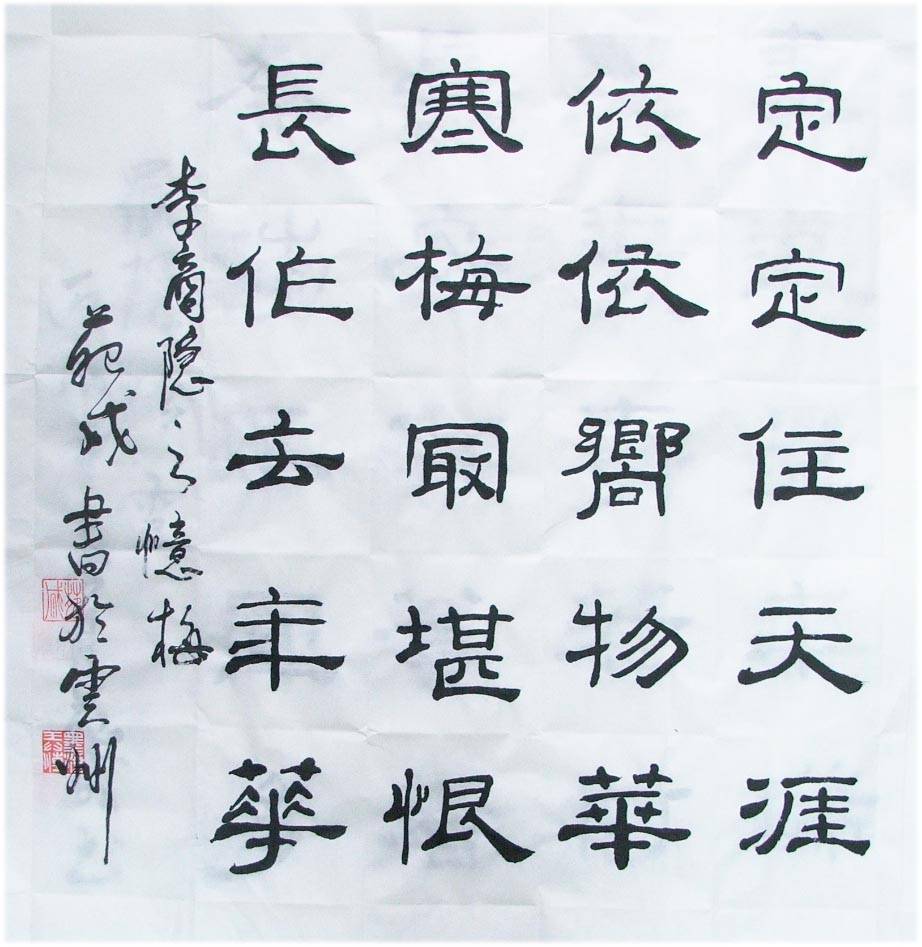 定定住天涯
依依嚮物華
寒梅最堪恨
長作去年華
李商隐之憶梅
書於雲州